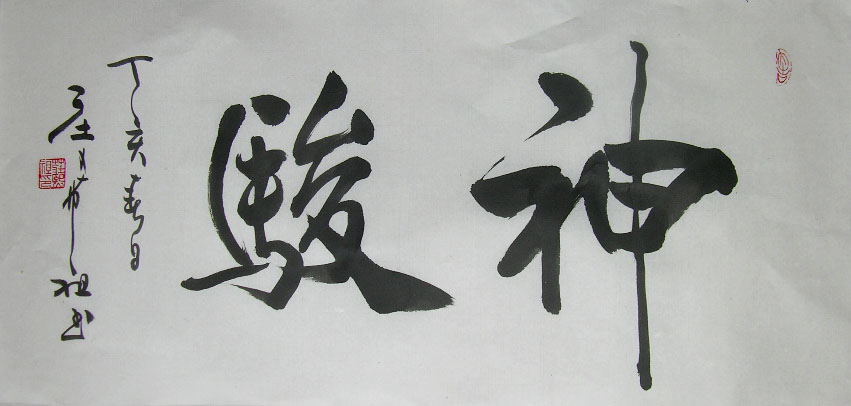 神駿
丁亥春日
祖书